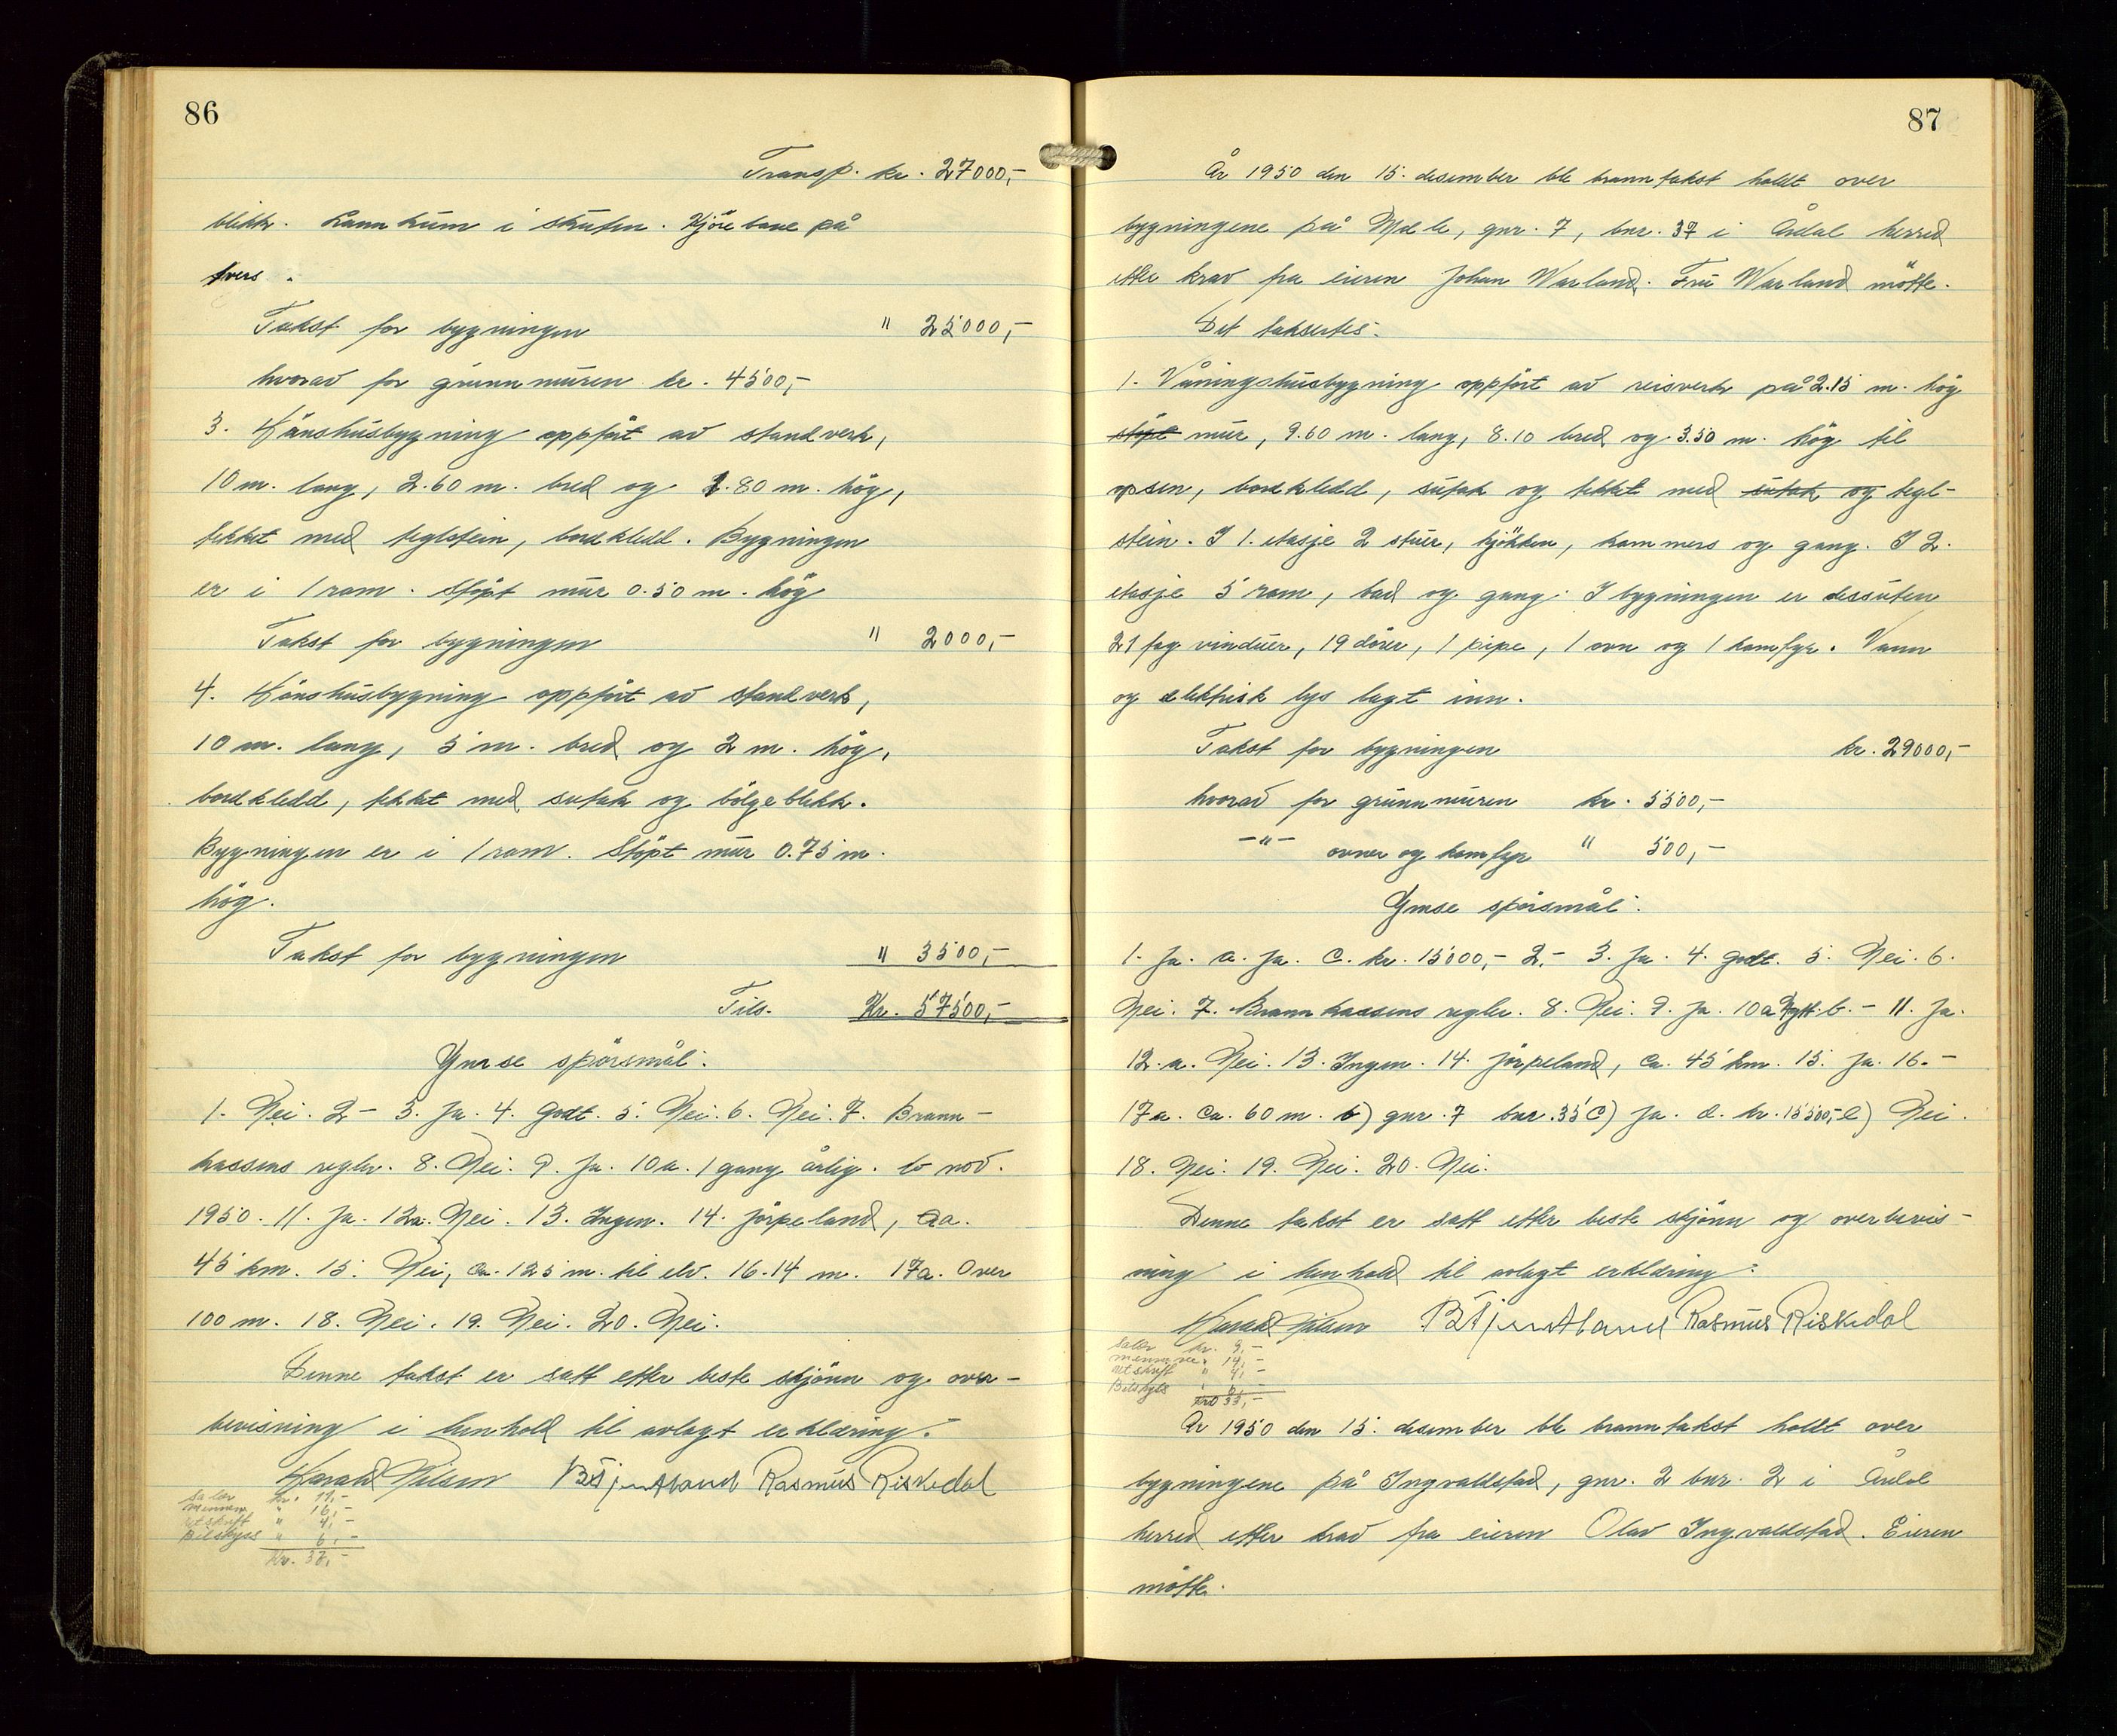 86
Transp. kr. 27000,-
blikk. Landkum i skuten. Kjörebane på
tvers.
Takst for bygningen " 25000,-
hvorav for grunnmuren kr. 4500,-
3. Hönshusbygning oppfört av standverk,
10 m. lang, 2.60 m. bred og 1.80 m. hög,
tekket med teglstein, bordkledd. Bygningen
er i 1 rom. Stöpt mur 0.50 m. hög
Takst for bygningen " 2000,-
4. Hönshusbygning oppfört av standverk,
10 m. lang, 5 m. bred og 2 m. hög,
bordkledd, tekket med sutak og bölgeblikk.
Bygningen er i 1 rom. Stöpt mur 0.75 m.
hög.
Takst for bygningen " 3500,-
Tils. Kr. 57500,-
Ymse spörsmål:
1. Nei. 2 - 3. Ja. 4. Godt. 5. Nei. 6. Nei. 7. Brann-
kassens regler. 8. Nei. 9. Ja. 10a. 1 gang årlig. b nov.
1950. 11. Ja. 12a. Nei. 13. Ingen. 14. Jörpeland, ca.
45 km. 15. Nei, ca. 125 m. til elv. 16. 14 m. 17a. Over
100 m. 18. Nei. 19. Nei. 20. Nei.
Denne takst er satt etter beste skjönn og over-
bevisning i henhold til avlagt erklæring.
Harald Nilsen Rasmus Riskedal
Saler kr. 11,-
mennene " 16,-
utskrift " 4,-
Bilskyss " 6,-
Kr. 37,-
87
År 1950 den 15. desember ble branntakst holdt over
bygningene på Mæle, gnr. 7, bnr. 37 i Årdal herred
etter krav fra eieren Johan Warland. Fru Warland mötte.
Det taksertes:
1. Våningshusbygning oppfört av reisverk på 2.15 m. hög
stöpt mur, 9.60 m. lang, 8.10 bred og 3.50 m. hög til
opsen, bordkledd, sutak og tekket med sutak og tegl-
stein. I 1. etasje 2 stuer, kjökken, kammers og gang. I 2.
etasje 5 rom, bad og gang. I bygningen er dessuten
21 fag vinduer, 19 dörer, 1 pipe, 1 ovn og 1 komfyr. Vann
og elektrisk lys lagt inn.
Takst for bygningen kr. 29000,-
hvorav for grunnmuren kr. 5500,-
-"- ovner og komfyr " 500,-
Ymse spörsmål:
1. Ja. a. Ja. c. kr. 15000,- 2.- 3. Ja. 4. Godt. 5. Nei. 6.
Nei. 7. Brannkassens regler. 8. Nei. 9. Ja. 10a Nytt. b.- 11. Ja.
12.a. Nei. 13. Ingen. 14. Jörpeland, ca. 45 km. 15. Ja. 16.-
17a. Ca. 60 m. b) gnr. 7 bnr. 35 c) Ja. d. kr. 15500,- e) Nei.
18. Nei. 19. Nei. 20. Nei.
Denne takst er satt etter beste skjönn og overbevis-
ning i henhold til avlagt erklæring.
Harald Nilsen Rasmus Riskedal
Saler kr. 9,-
mennene " 14,-
utskrift " 4,-
Bilskyss " 6,-
Kr. 33,-
År 1950 den 15. desember ble branntakst holdt over
bygningene på Ingvaldstad, gnr. 2 bnr. 2 i Årdal
herred etter krav fra eieren Olav Ingvaldstad. Eieren
mötte.